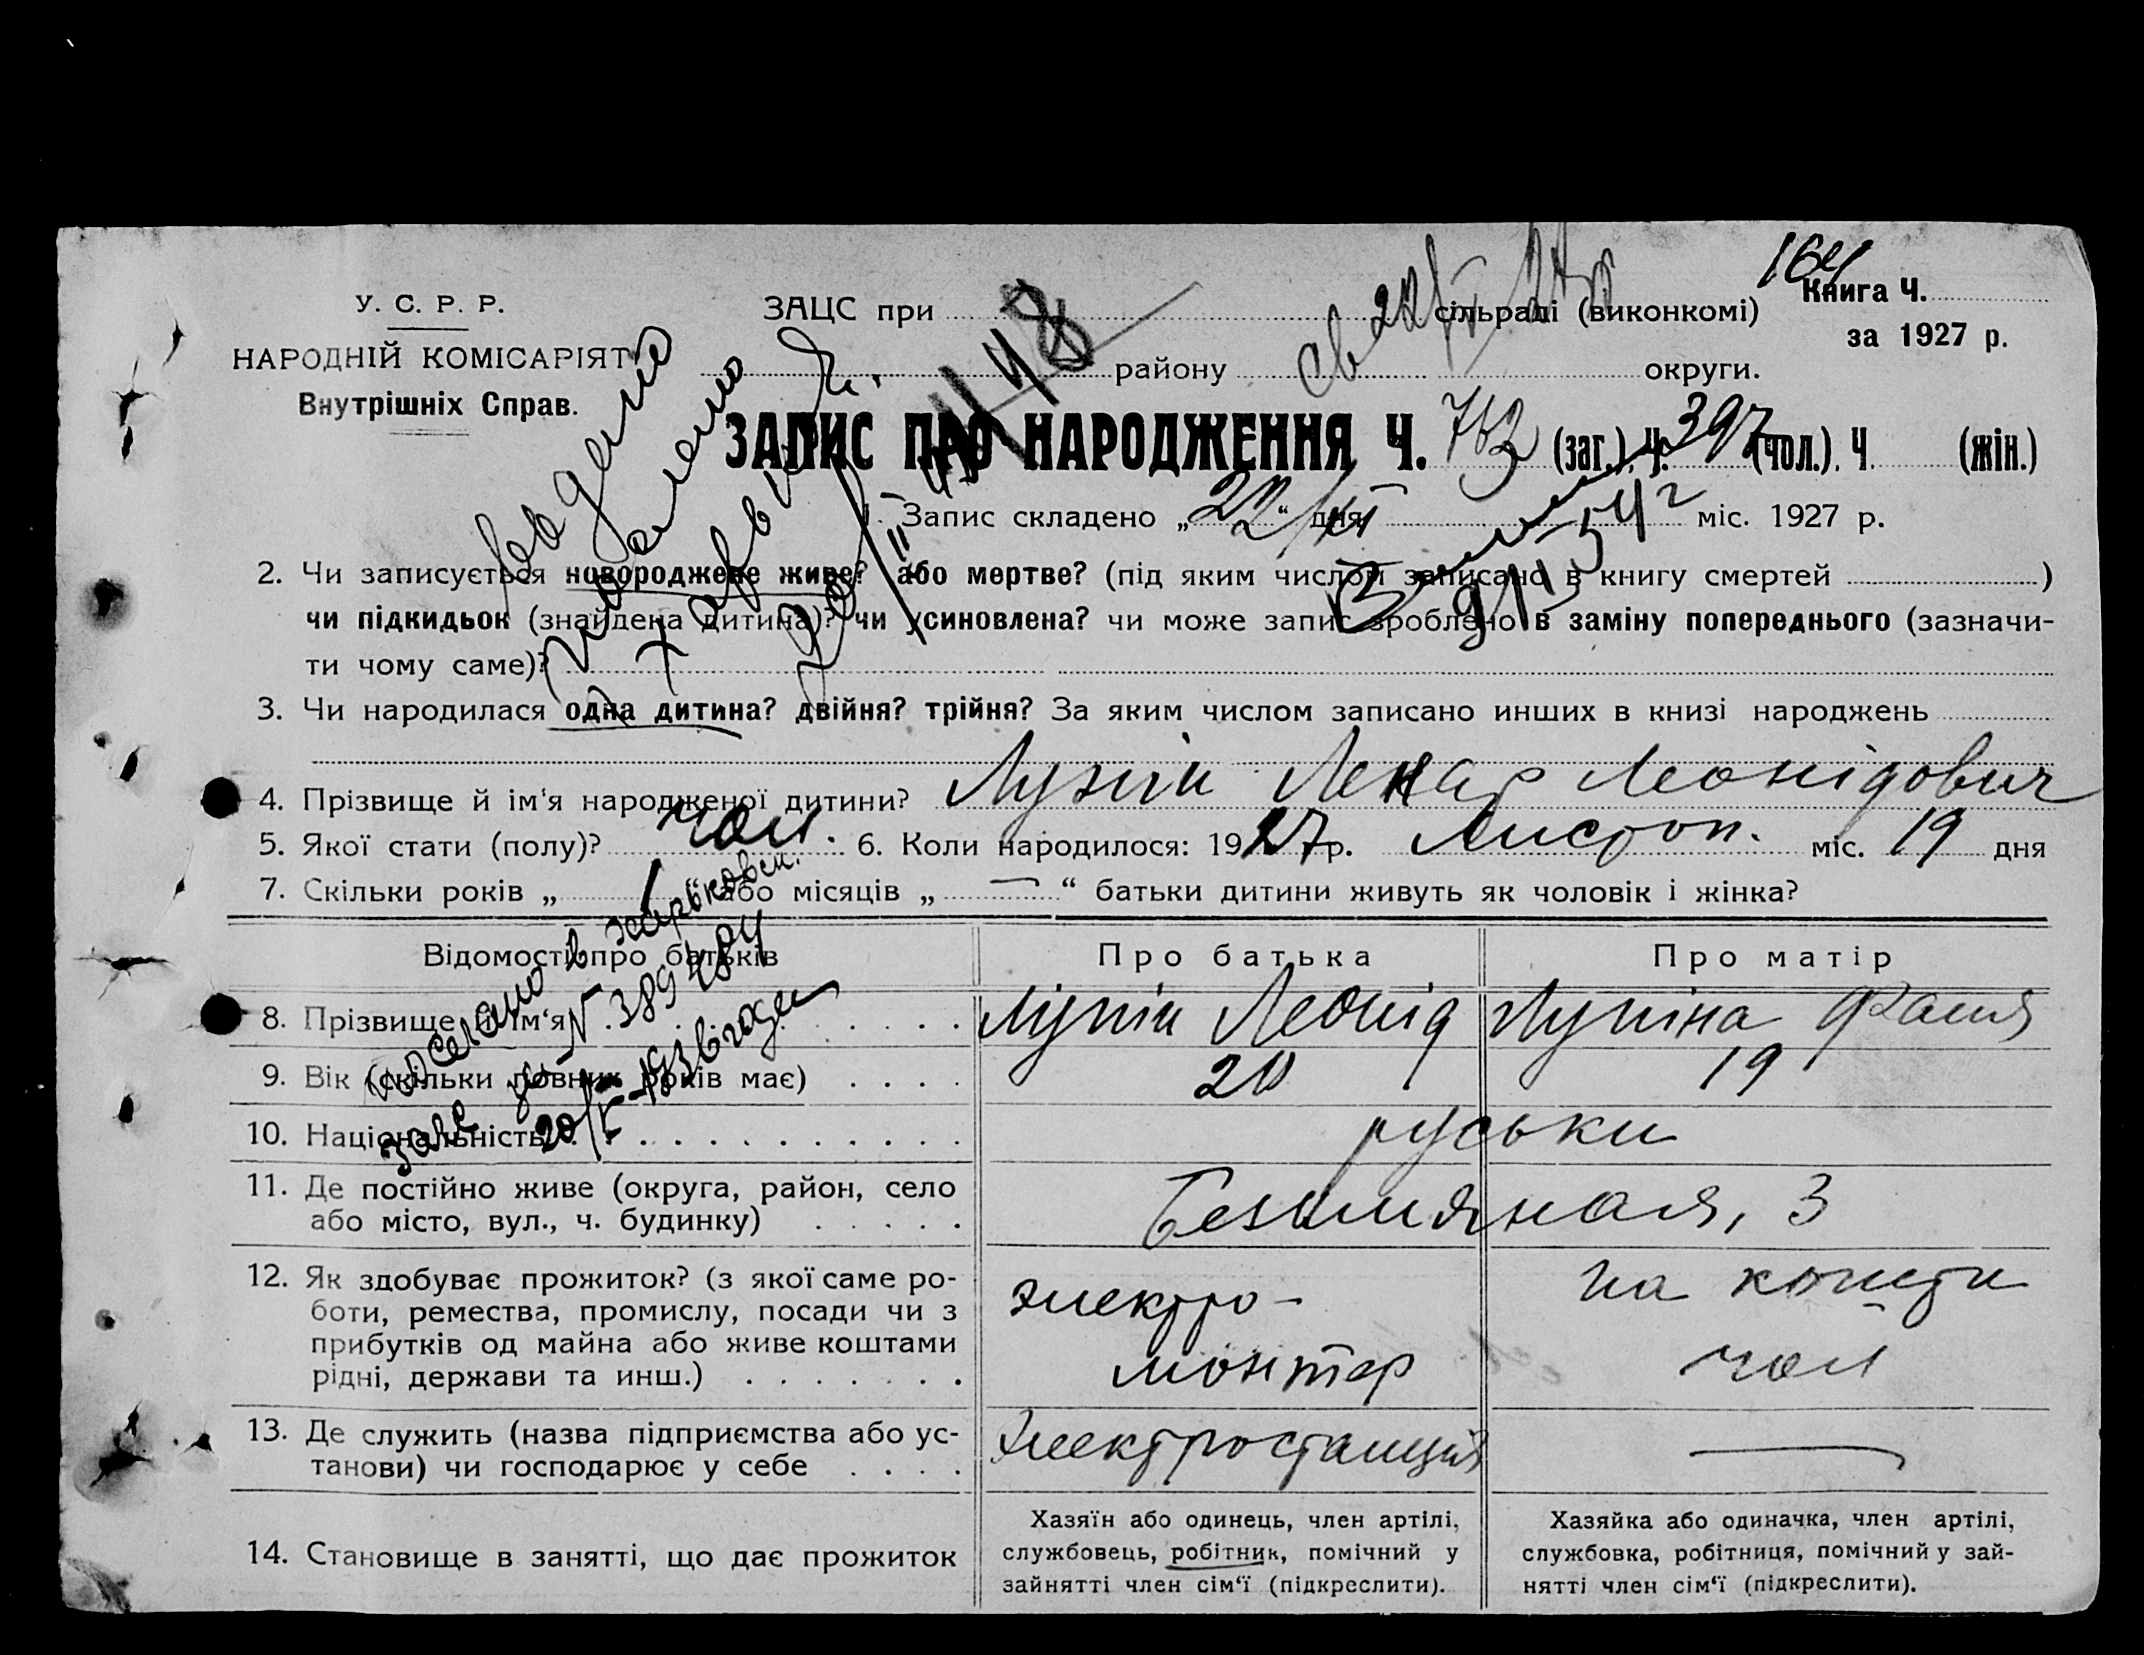 164
У. С. Р. Р.
НАРОДНІЙ КОМІСАРІЯТ
Внутрішніх Справ.
ЗАЦС при сільраді (виконкомі)
району округи.
Книга Ч.
за 1927 р.
ЗАПИС ПРО НАРОДЖЕННЯ Ч. 763 (заг.), Ч. 397 (чол.), Ч. (жін.)
1. Запис складено „22/XI“ дня міс. 1927 р.
2. Чи записується новороджене живе? або мертве? (під яким числом записано в книгу смертей )
чи підкидьок (знайдена дитина)? чи усиновлена? чи може запис зроблено в заміну попереднього (зазначи-
ти чому саме)?
3. Чи народилася одна дитина? двійня? трійня? За яким числом записано инших в книзі народжень
4. Прізвище й ім‘я народженої дитини? Лупін Ленар Леонідович
5. Якої стати (полу)? чол. 6. Коли народилося: 1927 р. Листоп. міс. 19 дня
7. Скільки років „1“ або місяців „—“ батьки дитини живуть як чоловік і жінка?
Відомості про батьків Про батька Про матір
8. Прізвище й ім‘я Лупін Леонід Лупіна Фаня
9. Вік (скільки повних років має) 20 19
10. Національність руськи
11. Де постійно живе (округа, район, село
або місто, вул., ч. будинку) Безимяная, 3
12. Як здобуває прожиток? (з якої саме ро-
боти, ремества, промислу, посади чи з
прибутків од майна або живе коштами
рідні, держави та инш.) електро-
монтер на кошти
чол
13. Де служить (назва підприємства або ус-
танови) чи господарює у себе Електростанція —
14. Становище в занятті, що дає прожиток
Хазяїн або одинець, член артілі,
службовець, робітник, помічний у
зайнятті член сім‘ї (підкреслити).
Хазяйка або одиначка, член артілі,
службовка, робітниця, помічний у зай-
нятті член сім‘ї (підкреслити).
1148
9/II 54 г
послано в харьковск.
загс